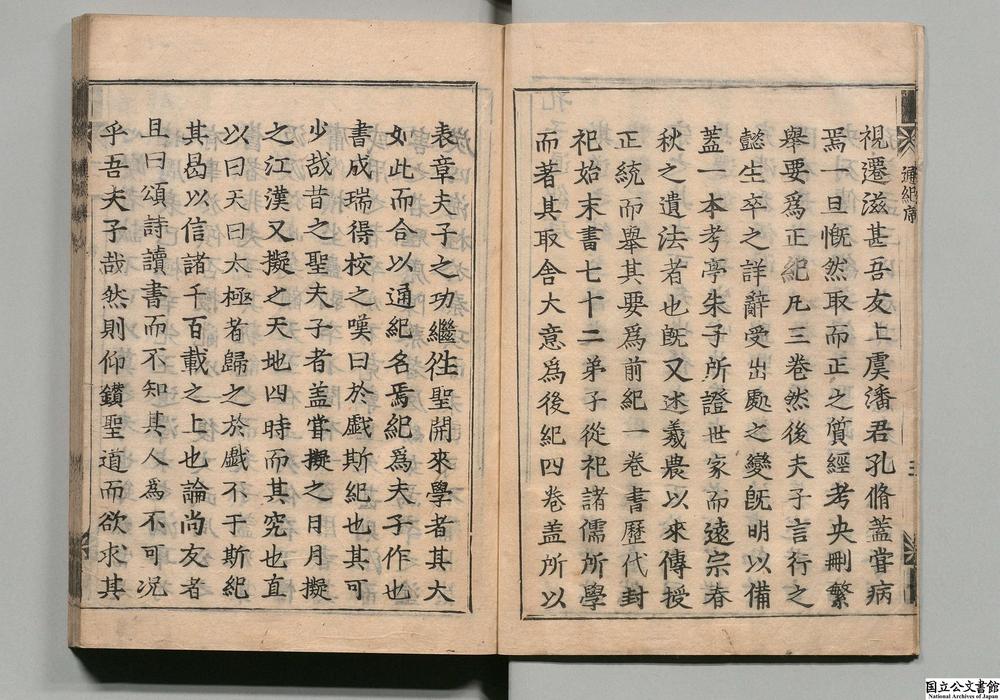 視遷滋甚吾友上虞潘君孔脩蓋嘗病
焉一旦慨然取而正之質經考史刪繁
舉要爲正紀凡三卷然後夫子言行之
懿生卒之詳辭受出處之變旣明以備
蓋一本考亭朱子所證世家而遠宗春
秋之遺法者也旣又述羲農以來傳授
正統而舉其要爲前紀一卷書歷代封
祀始末書七十二弟子從祀諸儒所學
而著其取舍大意爲後紀四卷盖所以
通紀序
表章夫子之功繼徃聖開來學者其大
如此而合以通紀名焉紀爲夫子作也
書成瑞得校之嘆曰於戲斯紀也其可
少哉昔之聖夫子者盖甞擬之日月擬
之江漢又擬之天地四時而其究也直
以曰天曰太極者歸之於戲不于斯紀
其曷以信諸千百載之上也論尚友者
且曰頌詩讀書而不知其人為不可况
乎吾夫子哉然則仰鑚聖道而欲求其
国立公文書館
National Archives of Japan